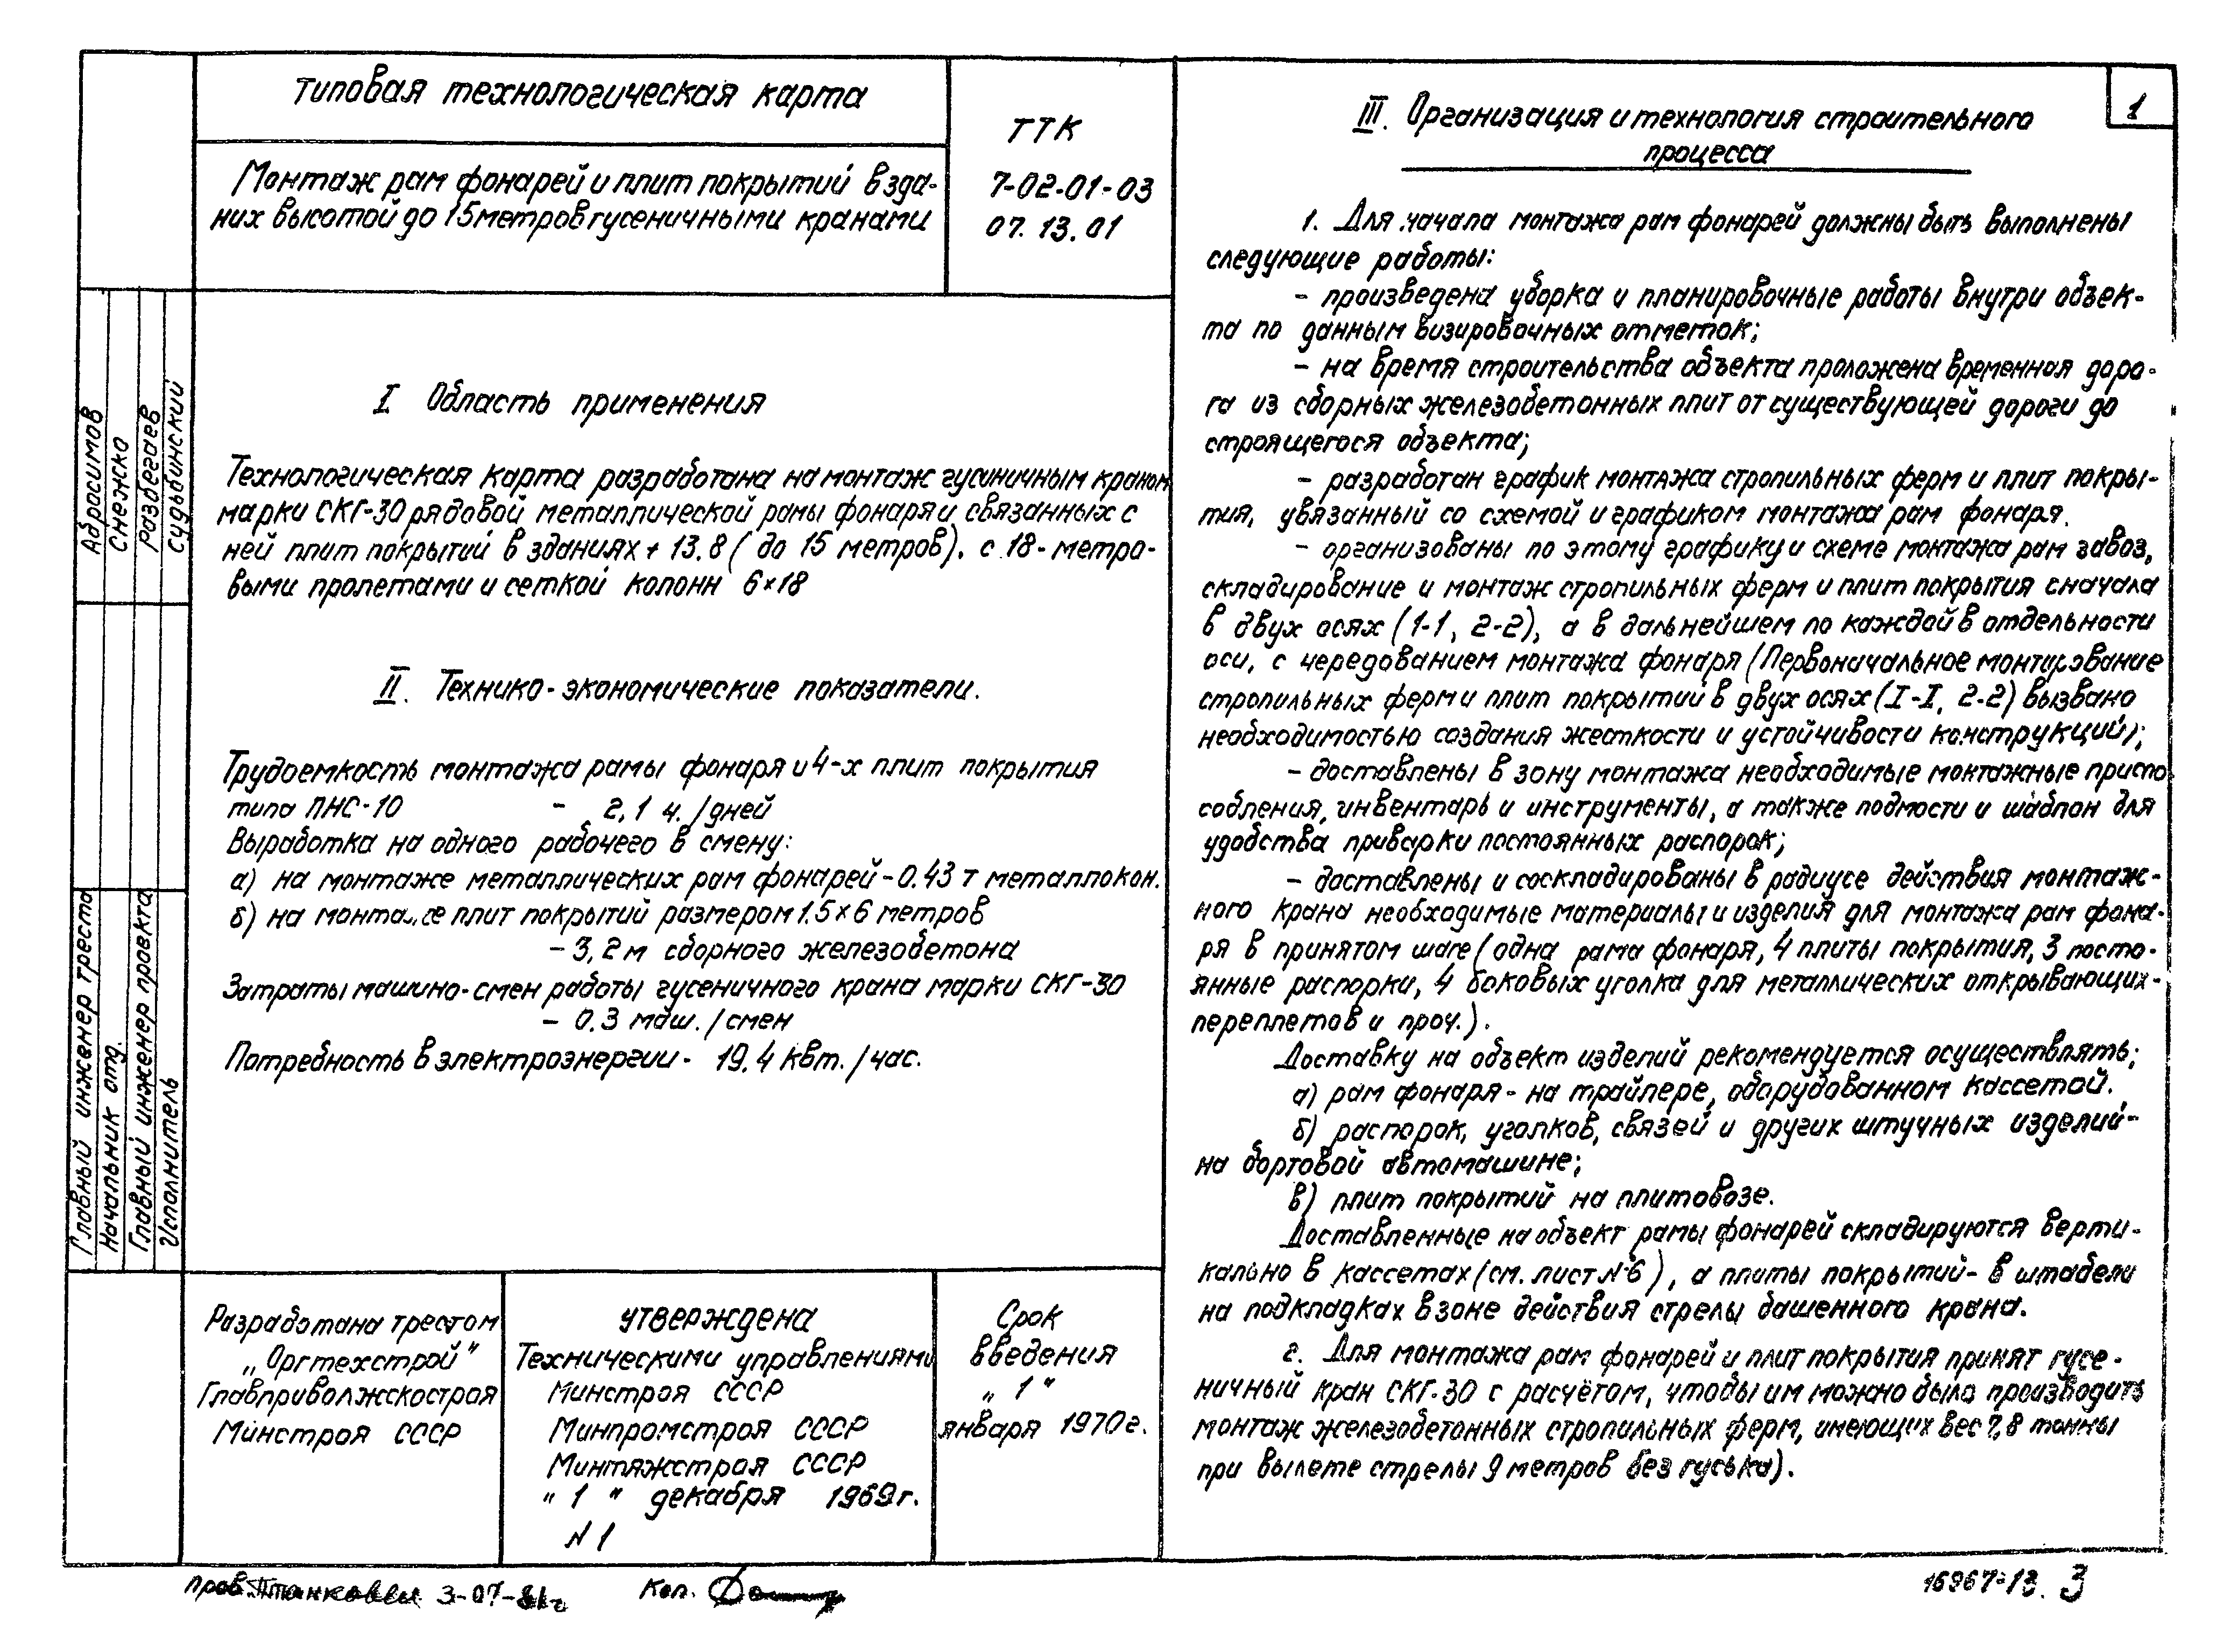 типовая технологическая карта
Монтаж рам фонарей и плит покрытий в зда-
них высотой до 15 метров гусеничными кранами
ТТК
7-02-01-03
07.13.01
I Область применения
Технологическая карта разработана на монтаж гусиничным краном
марки СКГ-30 рядовой металлической рамы фонаря и связанных с
ней плит покрытий в зданиях + 13.8 ( до 15 метров). с 18-метро-
выми пролетами и сеткой колонн 6×18
II. Технико-экономические показатели.
Трудоемкость монтажа рамы фонаря и 4-х плит покрытия
типа ПНС-10 - 2,1 ч./дней
Выработка на одного рабочего в смену:
а) на монтаже металлических рам фонарей - 0.43 т металлокон.
б) на монтаже плит покрытий размером 1.5×6 метров
- 3,2 м сборного железобетона
Затраты машино-смен работы гусеничного крана марки СКГ-30
- 0.3 маш./смен
Потребность в электроэнергии - 19.4 квт./час.
Абросимов
Снежко
Разбегаев
Судьбинский
Главный инженер треста
Начальник отд.
Главный инженер проекта
Исполнитель
Разработана трестом
„Оргтехстрой"
Главприволжскостроя
Минстроя СССР
утверждена
Техническими управлениями
Минстроя СССР
Минпромстроя СССР
Минтяжстроя СССР
„ 1 " декабря 1969г.
N 1
Срок
введения
„ 1 "
января 1970г.
1
III. Организация и технология строительного
процесса
1. Для начала монтажа рам фонарей должны быть выполнены
следующие работы:
- произведена уборка и планировочные работы внутри объек-
та по данным визировочных отметок;
- на время строительства объекта проложена временная доро-
га из сборных железобетонных плит от существующей дороги до
строящегося объекта;
- разработан график монтажа стропильных ферм и плит покры-
тия, увязанный со схемой и графиком монтажа рам фонаря.
- организованы по этому графику и схеме монтажа рам завоз,
складирование и монтаж стропильных ферм и плит покрытия сначала
в двух осях (1-1, 2-2), а в дальнейшем по каждой в отдельности
оси, с чередованием монтажа фонаря (Первоначальное монтирование
стропильных ферм и плит покрытий в двух осях (I-I, 2-2) вызвано
необходимостью создания жесткости и устойчивости конструкций);
- доставлены в зону монтажа необходимые монтажные приспо
собления, инвентарь и инструменты, а также подмости и шаблон для
удобства приварки постоянных распорок;
- доставлены и соскладированы в радиусе действия монтаж-
ного крана необходимые материалы и изделия для монтажа рам фона-
ря в принятом шаге (одна рама фонаря, 4 плиты покрытия, 3 посто-
янные распорки, 4 боковых уголка для металлических открывающих-
переплетов и проч.).
Доставку на объект изделий рекомендуется осуществлять;
а) рам фонаря - на трайлере, оборудованном кассетой.
б) распорок, уголков, связей и других штучных изделий-
на бортовой автомашине;
в) плит покрытий на плитовозе.
Доставленные на объект рамы фонарей складируются верти-
кально в кассетах (см. лист N-6), а плиты покрытий- в штабели
на подкладках в зоне действия стрелы башенного крана.
г. Для монтажа рам фонарей и плит покрытия принят гусе-
ничный кран СКГ-30 с расчётом, чтобы им можно было производить
монтаж железобетонных стропильных ферм, имеющих вес 7,8 тонны
при вылете стрелы 9 метров без гуська).
пров. 3-07-81г
Коп.
16967-13. 3